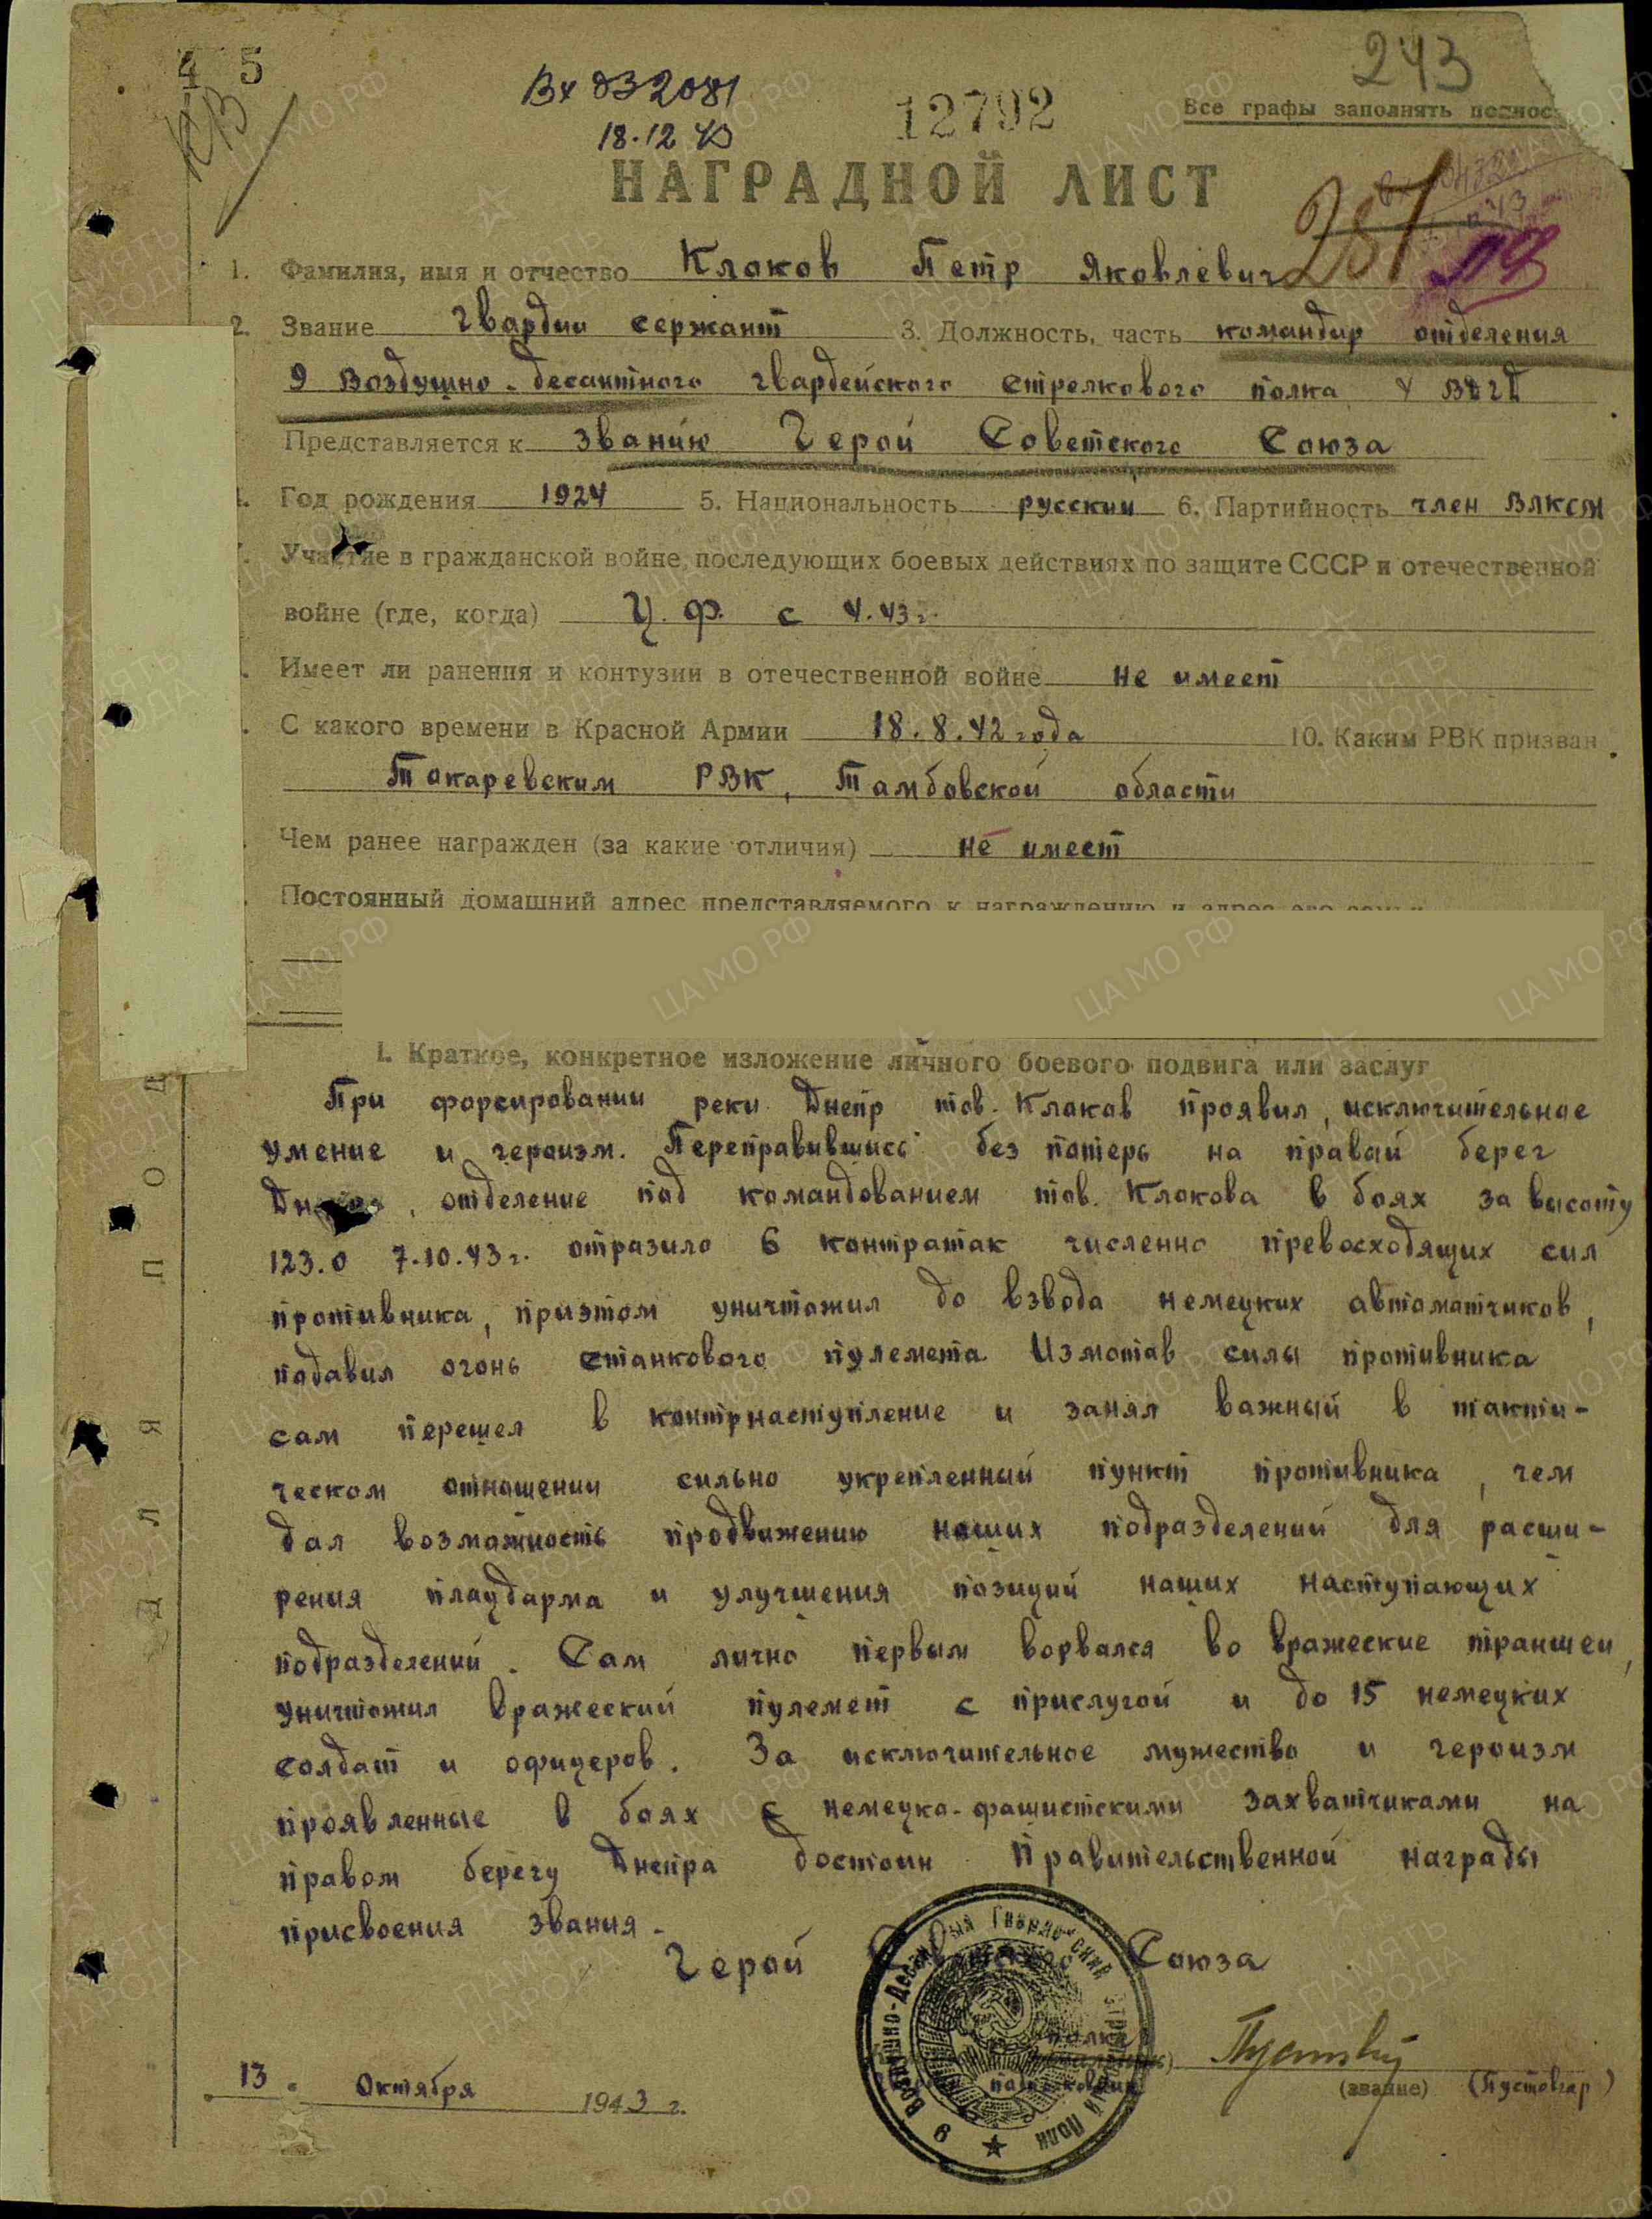 4 5
Вх 032081
18.12 43
12792
243
Все графы заполнять
НАГРАДНОЙ ЛИСТ
1. Фамилия, имя и отчество Клоков Петр Яковлевич
2. Звание гвардии сержант 3. Должность, часть командир отделения
9 Воздушно-десантного гвардейского стрелкового полка 4 ВДГД
Представляется к званию Герой Советского Союза
Год рождения 1924 5. Национальность русский 6. Партийность член ВЛКСМ
Участие в гражданской войне, последующих боевых действиях по защите СССР и отечественной
войне (где, когда) Ц.Ф. с 4.43 г.
Имеет ли ранения и контузии в отечественной войне не имеет
С какого времени в Красной Армии 18.8.42 года 10. Каким РВК призван
Токаревским РВК, Тамбовской области
Чем ранее награжден (за какие отличия) не имеет
Постоянный домашний адрес представляемого к награждению и адрес его семьи
I. Краткое, конкретное изложение личного боевого подвига или заслуг
При форсировании реки Днепр тов. Клоков проявил, исключительное
умение и героизм. Переправившись без потерь на правый берег
, отделение под командованием тов. Клокова в боях за высоту
123.0 7.10.43 г. отразило 6 контратак численно превосходящих сил
противника, приэтом уничтожил до взвода немецких автоматчиков,
подавил огонь станкового пулемета. Измотав силы противника
сам перешел в контрнаступление и занял важный в такти-
ческом отношении сильно укрепленный пункт противника, чем
дал возможность продвижению наших подразделений для расши-
рения плацдарма и улучшения позиций наших наступающих
подразделений. Сам лично первым ворвался во вражеские траншеи,
уничтожил вражеский пулемет с прислугой и до 15 немецких
солдат и офицеров. За исключительное мужество и героизм
проявленные в боях с немецко-фашистскими захватчиками на
правом берегу Днепра достоин Правительственной награды
присвоения звания -
Герой Советского Союза
полка
(звание) (Пустовгар)
13 Октября 1943 г.